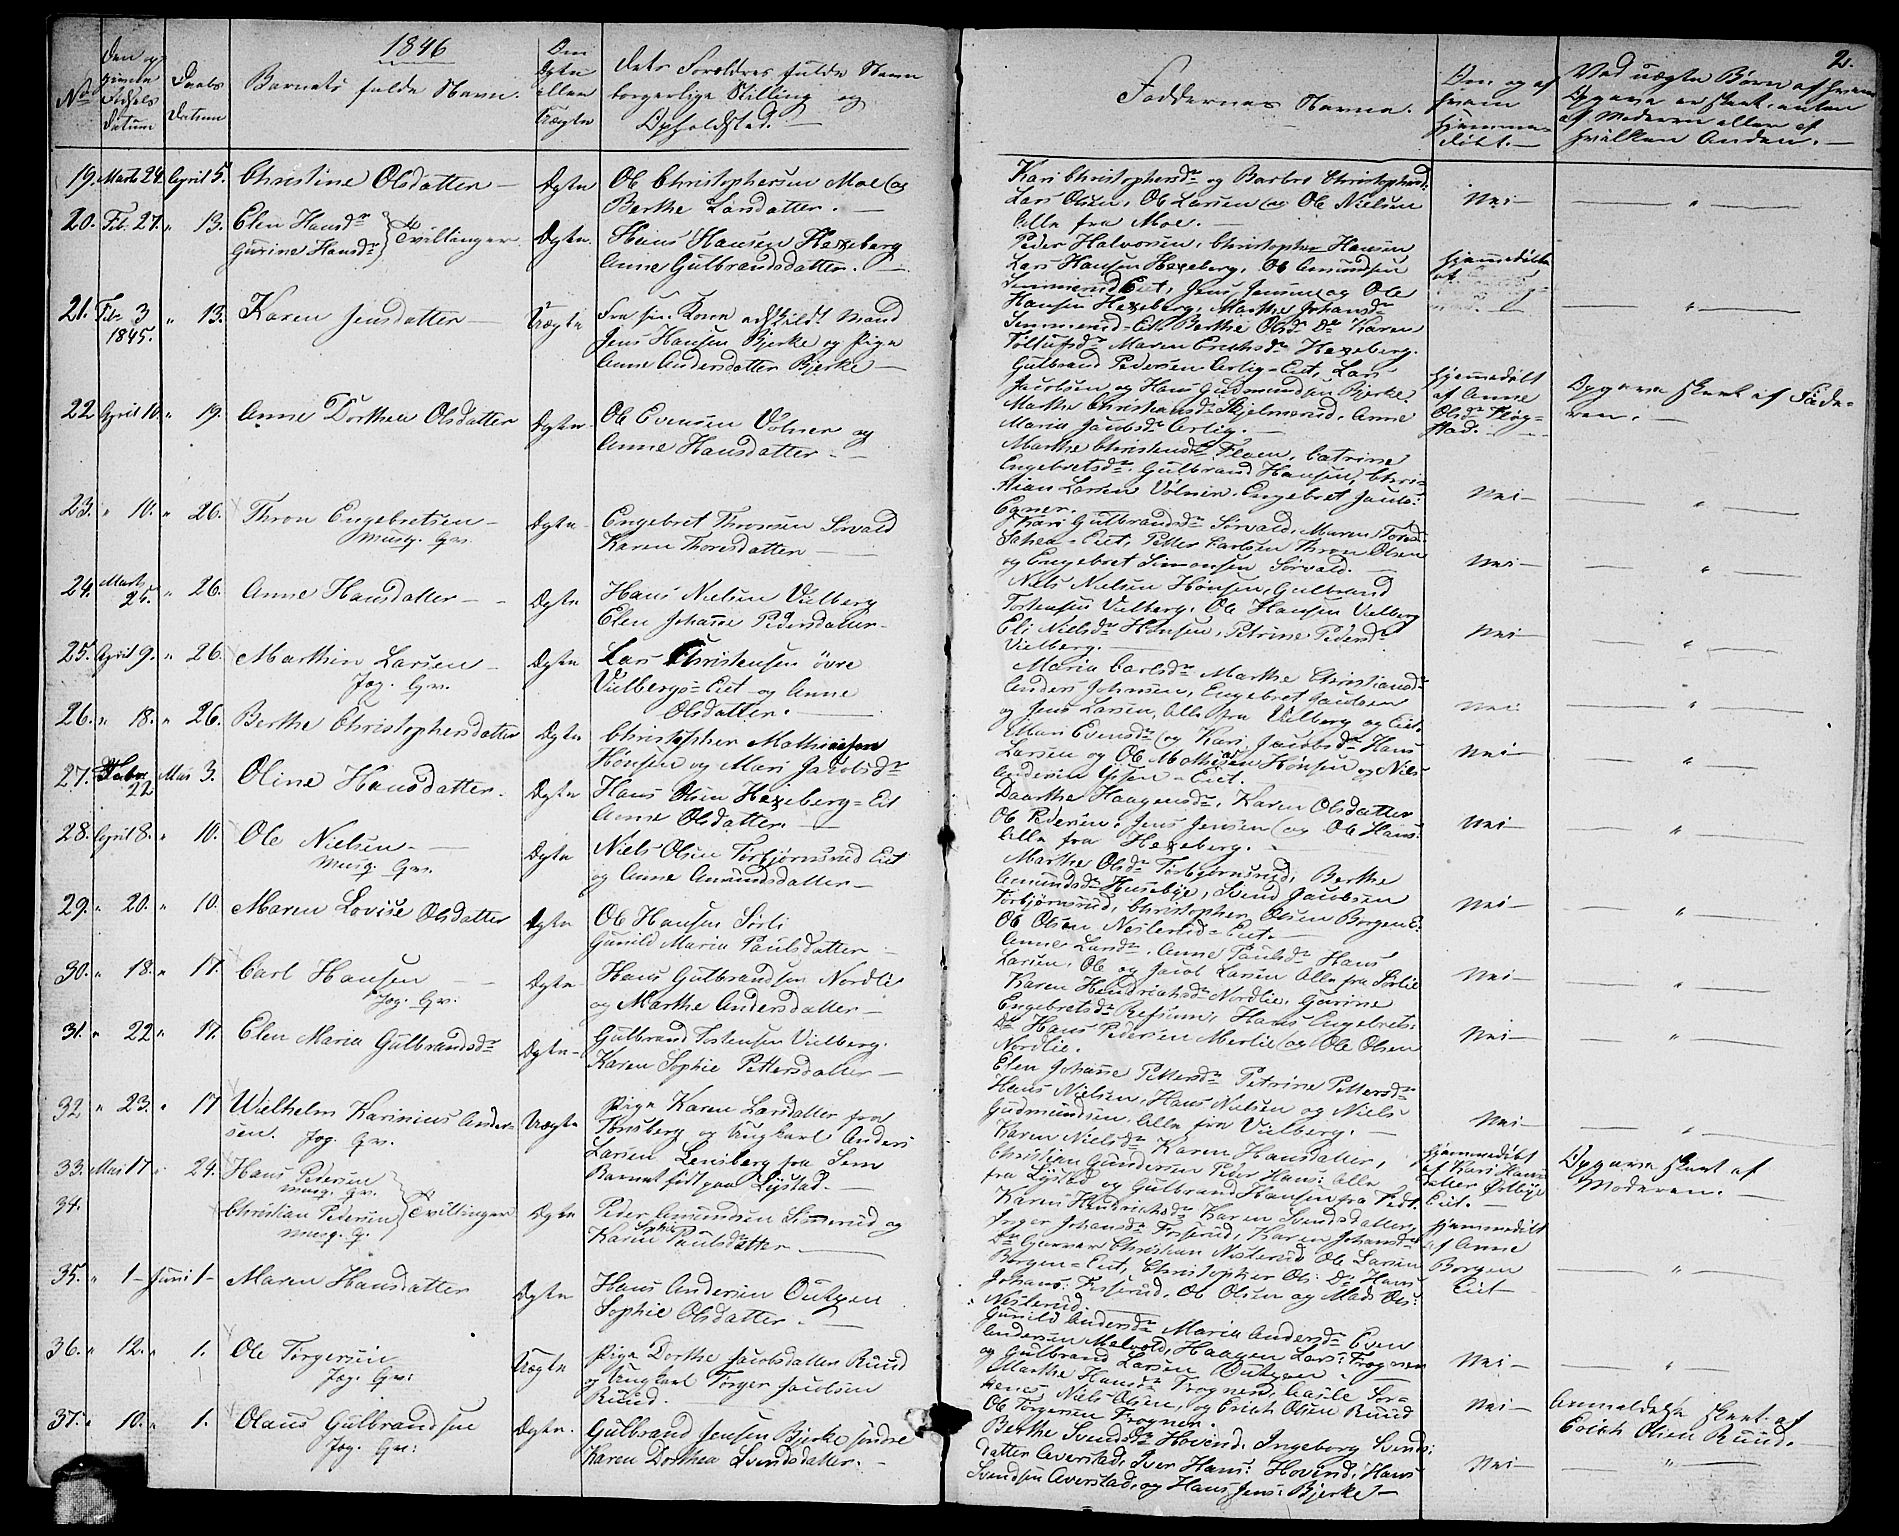 1846
2.
No
Den og
Fødsels
Datum
Daabs
Datum
Barnets fulde Navn.
Om
Ægte
eller
Uægte
Dets Forældres fulde Navn
borgerlige Stilling og
Opholdsted.
Faddernes Navne.
Om og af
hvem
hjemme-
døbt.
Ved uægte Børn af hvem
Opgave er skeet, enten
af Moderen eller af
hvilken Anden.
19. Marts 24. April 5. Christine Olsdatter Ægte Ole Christophersen Moe og
Berthe Larsdatter.
Kari Christophersdr og Barbro Christophersd:
Lars Olsen, Ole Larsen og Ole Nielsen
Alle fra Moe.
Nei
20. Feb. 27. " 13. Elen Hansdr
Gurine Hansdr Tvillinger Ægte Hans Hansen Hexeberg
Anne Gulbrandsdatter.
Peder Halvorsen, Christopher Hansen
Lars Hansen Hexeberg, Ole Amundsen
Simmerud Eiet, Jens Jensen og Ole
Hansen Hexeberg, Marthe Johansdr
Simmerud-Eie, Berthe Olsdr Do Karen
Tollufsdr Maren Erichsdr Hexeberg.
Hjemmedøbte
af
21. Feb: 3
1845. " 13. Karen Jensdatter Uægte Fra sin Kone adskildt Mand
Jens Hansen Bjerke og Pige
Anne Andersdatter Bjerke
Gulbrand Pedersen Arlig-Eiet, Lars
Jacobsen og Hans Gudmundsen Bjerke
Marthe Christiansdr Skjelmerud, Anne
Maria Jacobsdr Arlig.
Hjemmedøbt
af Anne
Olsdr Høg-
stad.
Opgave skeet af Fade-
ren.
22. April 10. " 19. Anne Dorthea Olsdatter Ægte Ole Evensen Volner og
Anne Hansdatter
Marthe Christensdr Floen, Catrine
Engebretsdr Gulbrand Hansen, Chri-
stian Larsen Volner, Engebret Jacob:
Egner.
Nei
23. " 10. " 26. Thron Engebretsen
Musq. Gv.
Ægte Engebret Thronsen Sørvald
Karen Thoresdatter
Kari Gulbrandsdr Sørvald, Maren Tores
Eiet, Petter Carlsen Thron Olsen
og Engebret Simonsen Sørvald.
Nei
24. Marts
25. " 26. Anne Hansdatter Ægte Hans Nielsen Vilberg
Elen Johanne Pedersdatter
Niels Nielsen Hønsen, Gulbrand
Tostensen Vilberg, Ole Hansen Vilberg
Eli Nielsdr Hønsen, Petrine Pedersdr
Vilberg.
Nei
25. April 9. " 26. Marthin Larsen
Jag. Gv.
Ægte Lars Christensen øvre
Vilbergs-Eiet og Anne
Olsdatter.
Maria Carlsdr Marthe Christiansdr
Anders Johnsen, Engebret Paulsen
og Jens Larsen, Alle fra Vilberg og Eiet.
Nei
26. " 18. " 26. Berthe Christophersdatter Ægte Christopher Mathiesen
Hønsen og Mari Jacobsdr
Mari Evensdr og Kari Jacobsdr Hans
Larsen og Ole Mathisen Hønsen og Niels
Andersen Eiet.
Nei
27. Febr
22. Mai 3. Oline Hansdatter Ægte Hans Olsen Hexeberg-Eiet
Anne Olsdatter.
Daarthe Haagensdr, Karen Olsdatter
Ole Pedersen, Jens Jensen og Ole Hans:
Alle fra Hexeberg.
Nei
28. April 8. " 10. Ole Nielsen
Musq. Gv.
Ægte Niels Olsen Torbjørnsrud Eiet
og Anne Amundsdatter
Marthe Olsdr Torbjørnsrud, Berthe
Amundsdr Husebye, Svend Jacobsen
Torbjørnsrud, Christopher Olsen Borgen E.
Ole Olsen Neslerud-Eiet
Nei
29. " 20. " 10. Maren Lovise Olsdatter Ægte Ole Hansen Sørli
Gunild Maria Paulsdatter
Anne Larsdr. Anne Paulsdr Hans
Larsen, Ole og Jacob Larsen Alle fra Sørlie
Nei
30. " 18. " 17. Carl Hansen
Jag. Gv.
Ægte Hans Gulbrandsen Nordlie
og Marthe Andersdatter
Karen Hendrichsdr Nordlie, Gurine
Engebretsdr Refsum, Hans Engebrets:
Do Hans Pedersen Merlie og Ole Olsen
Nordlie.
Nei
31. " 22 " 17. Elen Maria Gulbrandsdr Ægte Gulbrand Tostensen Vilberg.
Karen Sophie Pettersdatter
Elen Johanne Pettersdr Petrine Pettersdr
Hans Nielsen, Hans Nielsen og Niels
Gudmundsen, Alle fra Vilberg.
Nei
32 " 23. " 17 Wilhelm Karinius Ander-
sen. Jag. Gv.
Uægte Pige Karen Larsdatter fra
Tonsberg og Ungkarl Anders
Larsen Lensberg fra Sem
Barnet født paa Lystad.
Karen Nielsdr Karen Hansdatter,
Christian Gundersen Peder Hans: Alle
fra Lystad og Gulbrand Hansen fra
Hjemmedøbt
af Kari Hans
datter Østbye
Eiet.
Opgave skeet af
Moderen.
33. Mai 17 " 24. Hans Pedersen
Musq. Gv.
34. Christian Pedersen
Musq. G. Tvillinger Ægte Peder Amundsen Simmerud og
Karen Sophie Paulsdatter
Karen Hendrichsdr Karen Svendsdatter,
Inger Johansdr Fosserud, Karen Johansdr
Do Gunnar Christian Neslerud Ole Larsen
Borgen-Eiet, Christopher Ols: Do Hans
Johans: Fosserud, Ole Olsen og Mads Ols:
Neslerud.
Hjemmedøbt
af Anne
Borgen
Eiet
35. " 1 Juni 1 Maren Hansdatter Ægte Hans Andersen Outzen
Sophie Olsdatter.
Gunild Andersdr Maria Andersdr Even
Andersen Melvold, Haagen Lars: Frogner
og Gulbrand Larsen Outzen
Nei
36. " 12. " 1. Ole Torgersen
Jag. Gv:
Uægte Pige Dorthe Jacobsdatter Ruud
og Ungkarl Torger Jacobsen
Ruud.
Marthe Hansdr Frogner,
Niels Olsen, og Erich Olsen Ruud
Ole Torgersen Frogner.
Nei
Anmeldelse skeet af
Erich Olsen Ruud.
37. " 10. " 1. Olaus Gulbrandsen
Jag. Gv:
Ægte. Gulbrand Jensen Bjerke søndre
Karen Dorthea Svendsdatter.
Berthe Svendsdr Hovind, Ingeborg Svends:
datter Averstad, Iver Hans: Hovind, Hans
Svendsen Averstad, og Hans Jens: Bjerke
Nei